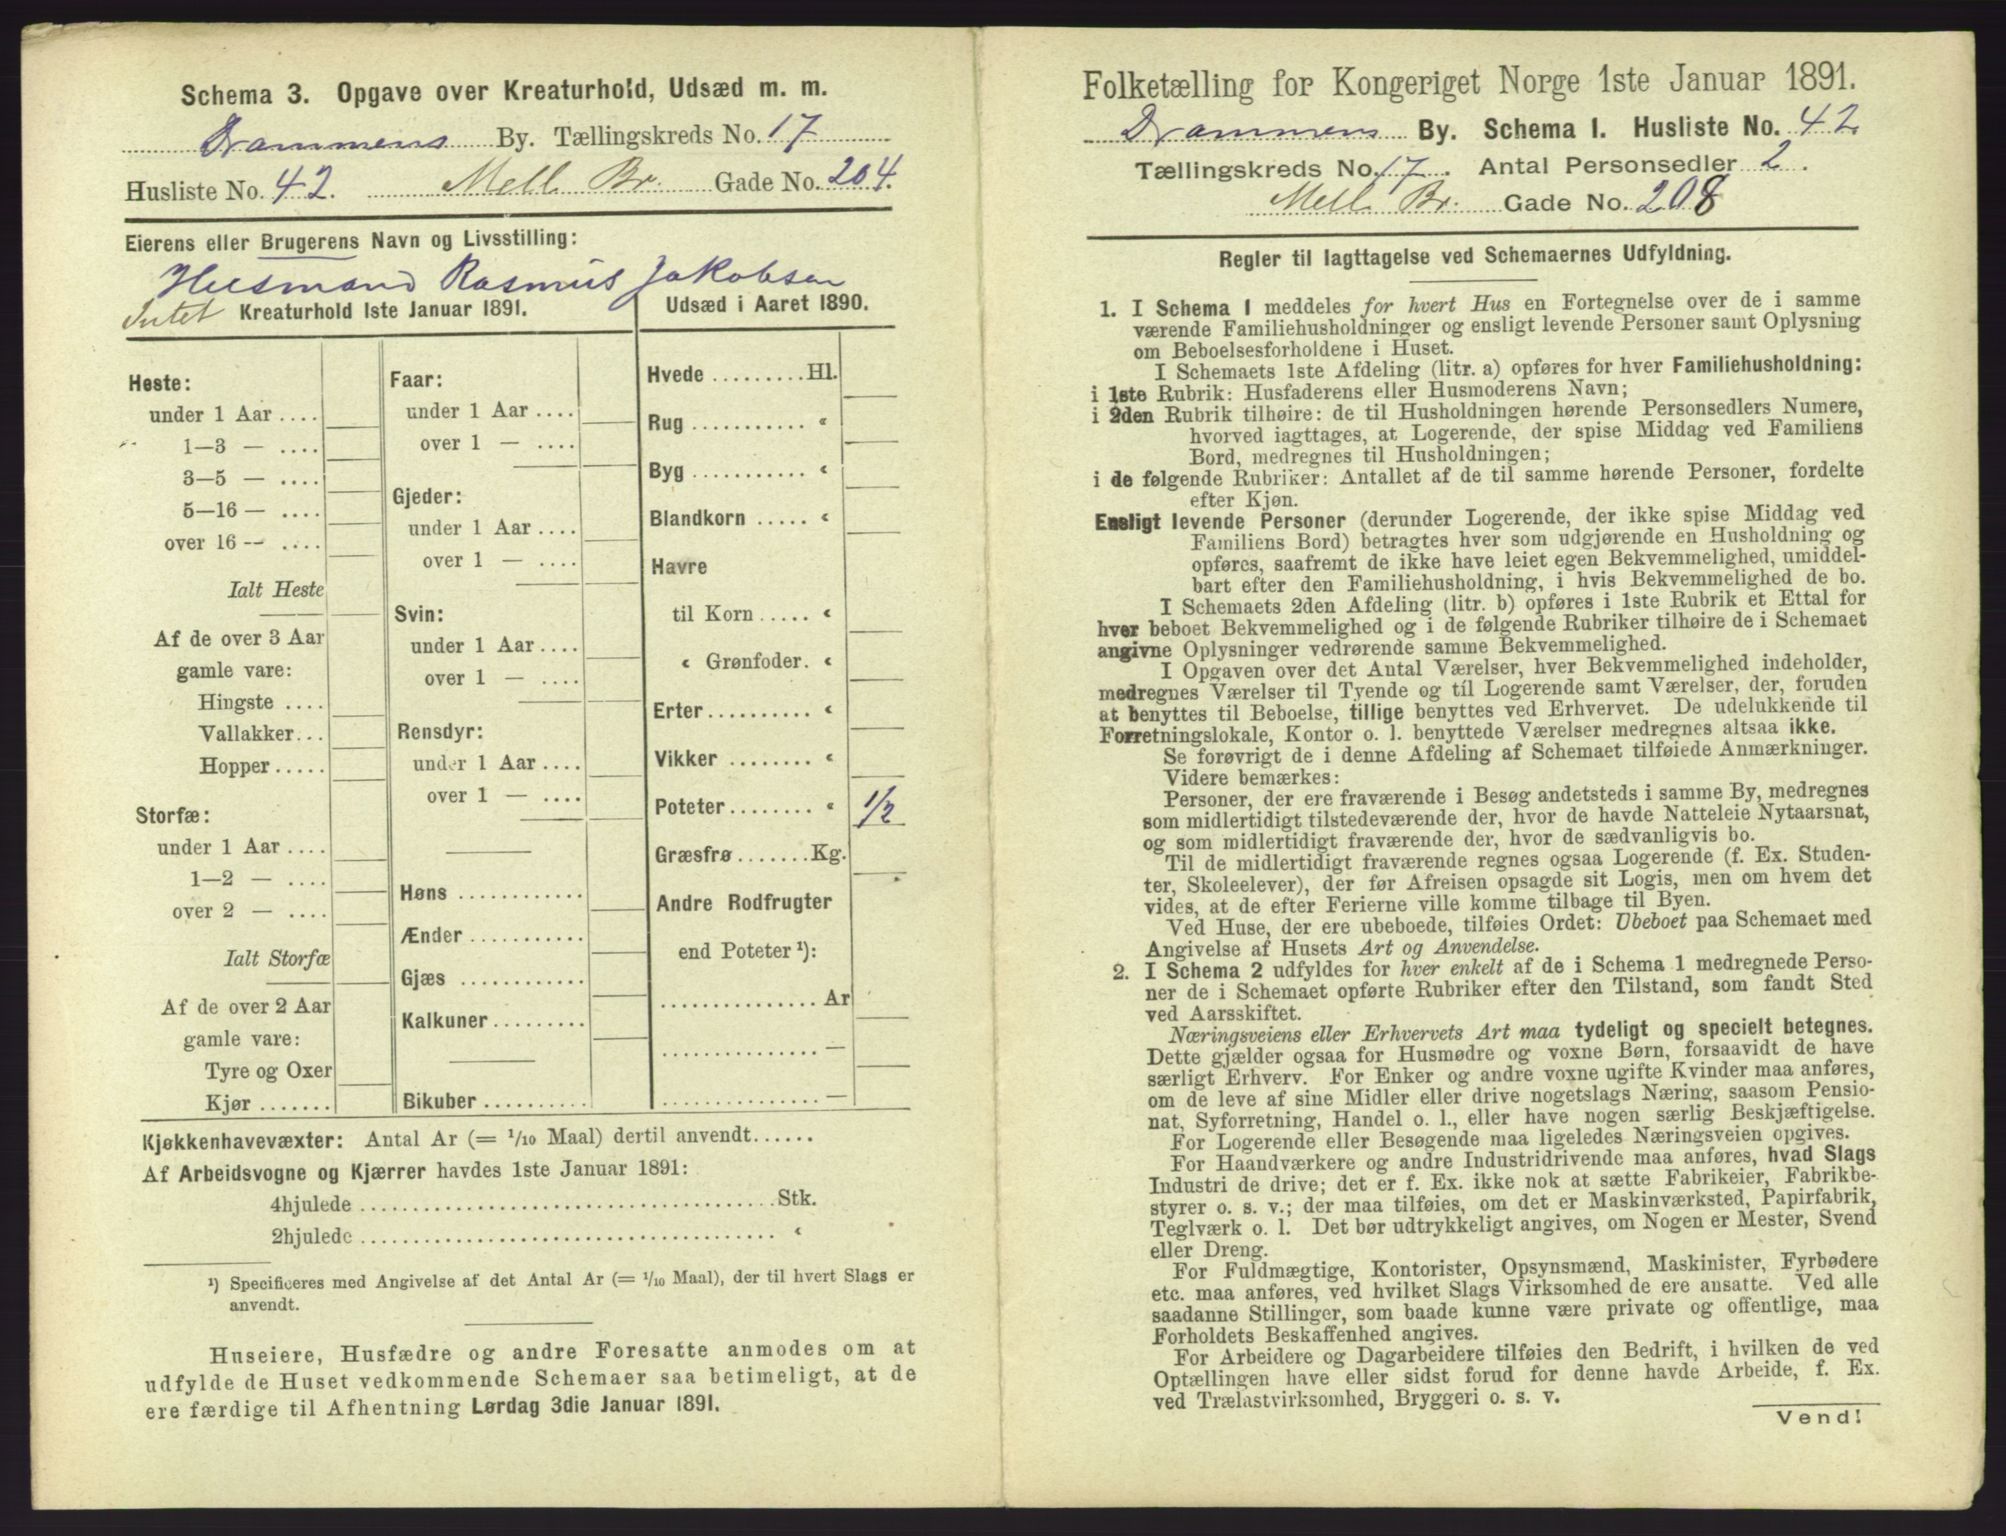 Schema 3. Opgave over Kreaturhold, Udsæd m. m.
Drammens By. Tællingskreds No. 17
Husliste No. 42. Mell. Br. Gade No. 204.
Eierens eller Brugerens Navn og Livsstilling:
Husmand Rasmus Jakobsen
Intet Kreaturhold 1ste Januar 1891.
Heste:
under 1 Aar ....
1—3 — ....
3—5 — ....
5—16 — ....
over 16 — ....
Ialt Heste
Af de over 3 Aar
gamle vare:
Hingste ....
Vallakker...
Hopper.....
Storfæ:
under 1 Aar ....
1—2 — ....
over 2 — ....
Ialt Storfæ
Af de over 2 Aar
gamle vare:
Tyre og Oxer
Kjør .......
Faar:
under 1 Aar ....
over 1 — ....
Gjeder:
under 1 Aar ....
over 1 — ....
Svin:
under 1 Aar ....
over 1 — ....
Rensdyr:
under 1 Aar ....
over 1 — ....
Høns ............
Ænder ...........
Gjæs ............
Kalkuner.........
Bikuber ..........
Udsæd i Aaret 1890.
Hvede .........Hl.
Rug ........... «
Byg ........... «
Blandkorn ..... «
Havre
til Korn ..... «
« Grønfoder. «
Erter.......... «
Vikker ........ «
Poteter........ « 1/2
Græsfrø.......Kg.
Andre Rodfrugter
end Poteter ¹):
............... Ar
............... —
............... —
Kjøkkenhavevæxter: Antal Ar (= 1/10 Maal) dertil anvendt......
Af Arbeidsvogne og Kjærrer havdes 1ste Januar 1891:
4hjulede ....................................... Stk.
2hjulede ....................................... «
¹) Specificeres med Angivelse af det Antal Ar (= 1/10 Maal), der til hvert Slags er
anvendt.
Huseiere, Husfædre og andre Foresatte anmodes om at
udfylde de Huset vedkommende Schemaer saa betimeligt, at de
ere færdige til Afhentning Lørdag 3die Januar 1891.
Folketælling for Kongeriget Norge 1ste Januar 1891.
Drammens By. Schema I. Husliste No. 42
Tællingskreds No. 17. Antal Personsedler 2.
Mell. Br. Gade No. 208
Regler til Iagttagelse ved Schemaernes Udfyldning.
1. I Schema 1 meddeles for hvert Hus en Fortegnelse over de i samme
værende Familiehusholdninger og ensligt levende Personer samt Oplysning
om Beboelsesforholdene i Huset.
I Schemaets 1ste Afdeling (litr. a) opføres for hver Familiehusholdning:
i 1ste Rubrik: Husfaderens eller Husmoderens Navn;
i 2den Rubrik tilhøire: de til Husholdningen hørende Personsedlers Numere,
hvorved iagttages, at Logerende, der spise Middag ved Familiens
Bord, medregnes til Husholdningen;
i de følgende Rubriker: Antallet af de til samme hørende Personer, fordelte
efter Kjøn.
Ensligt levende Personer (derunder Logerende, der ikke spise Middag ved
Familiens Bord) betragtes hver som udgjørende en Husholdning og
opføres, saafremt de ikke have leiet egen Bekvemmelighed, umiddel-
bart efter den Familiehusholdning, i hvis Bekvemmelighed de bo.
I Schemaets 2den Afdeling (litr. b) opføres i 1ste Rubrik et Ettal for
hver beboet Bekvemmelighed og i de følgende Rubriker tilhøire de i Schemaet
angivne Oplysninger vedrørende samme Bekvemmelighed.
I Opgaven over det Antal Værelser, hver Bekvemmelighed indeholder,
medregnes Værelser til Tyende og til Logerende samt Værelser, der, foruden
at benyttes til Beboelse, tillige benyttes ved Erhvervet. De udelukkende til
Forretningslokale, Kontor o. l. benyttede Værelser medregnes altsaa ikke.
Se forøvrigt de i denne Afdeling af Schemaet tilføiede Anmærkninger.
Videre bemærkes:
Personer, der ere fraværende i Besøg andetsteds i samme By, medregnes
som midlertidigt tilstedeværende der, hvor de havde Natteleie Nytaarsnat,
og som midlertidigt fraværende der, hvor de sædvanligvis bo.
Til de midlertidigt fraværende regnes ogsaa Logerende (f. Ex. Studen-
ter, Skoleelever), der før Afreisen opsagde sit Logis, men om hvem det
vides, at de efter Ferierne ville komme tilbage til Byen.
Ved Huse, der ere ubeboede, tilføies Ordet: Ubeboet paa Schemaet med
Angivelse af Husets Art og Anvendelse.
2. I Schema 2 udfyldes for hver enkelt af de i Schema 1 medregnede Perso-
ner de i Schemaet opførte Rubriker efter den Tilstand, som fandt Sted
ved Aarsskiftet.
Næringsveiens eller Erhvervets Art maa tydeligt og specielt betegnes.
Dette gjælder ogsaa for Husmødre og voxne Børn, forsaavidt de have
særligt Erhverv. For Enker og andre voxne ugifte Kvinder maa anføres,
om de leve af sine Midler eller drive nogetslags Næring, saasom Pensio-
nat, Syforretning, Handel o. l., eller have nogen særlig Beskjæftigelse.
For Logerende eller Besøgende maa ligeledes Næringsveien opgives.
For Haandværkere og andre Industridrivende maa anføres, hvad Slags
Industri de drive; det er f. Ex. ikke nok at sætte Fabrikeier, Fabrikbe-
styrer o. s. v.; der maa tilføies, om det er Maskinværksted, Papirfabrik,
Teglværk o. l. Det bør udtrykkeligt angives, om Nogen er Mester, Svend
eller Dreng.
For Fuldmægtige, Kontorister, Opsynsmænd, Maskinister, Fyrbødere
etc. maa anføres, ved hvilket Slags Virksomhed de ere ansatte. Ved alle
saadanne Stillinger, som baade kunne være private og offentlige, maa
Forholdets Beskaffenhed angives.
For Arbeidere og Dagarbeidere tilføies den Bedrift, i hvilken de ved
Optællingen have eller sidst forud for denne havde Arbeide, f. Ex.
ved Trælastvirksomhed, Bryggeri o. s. v.
Vend!